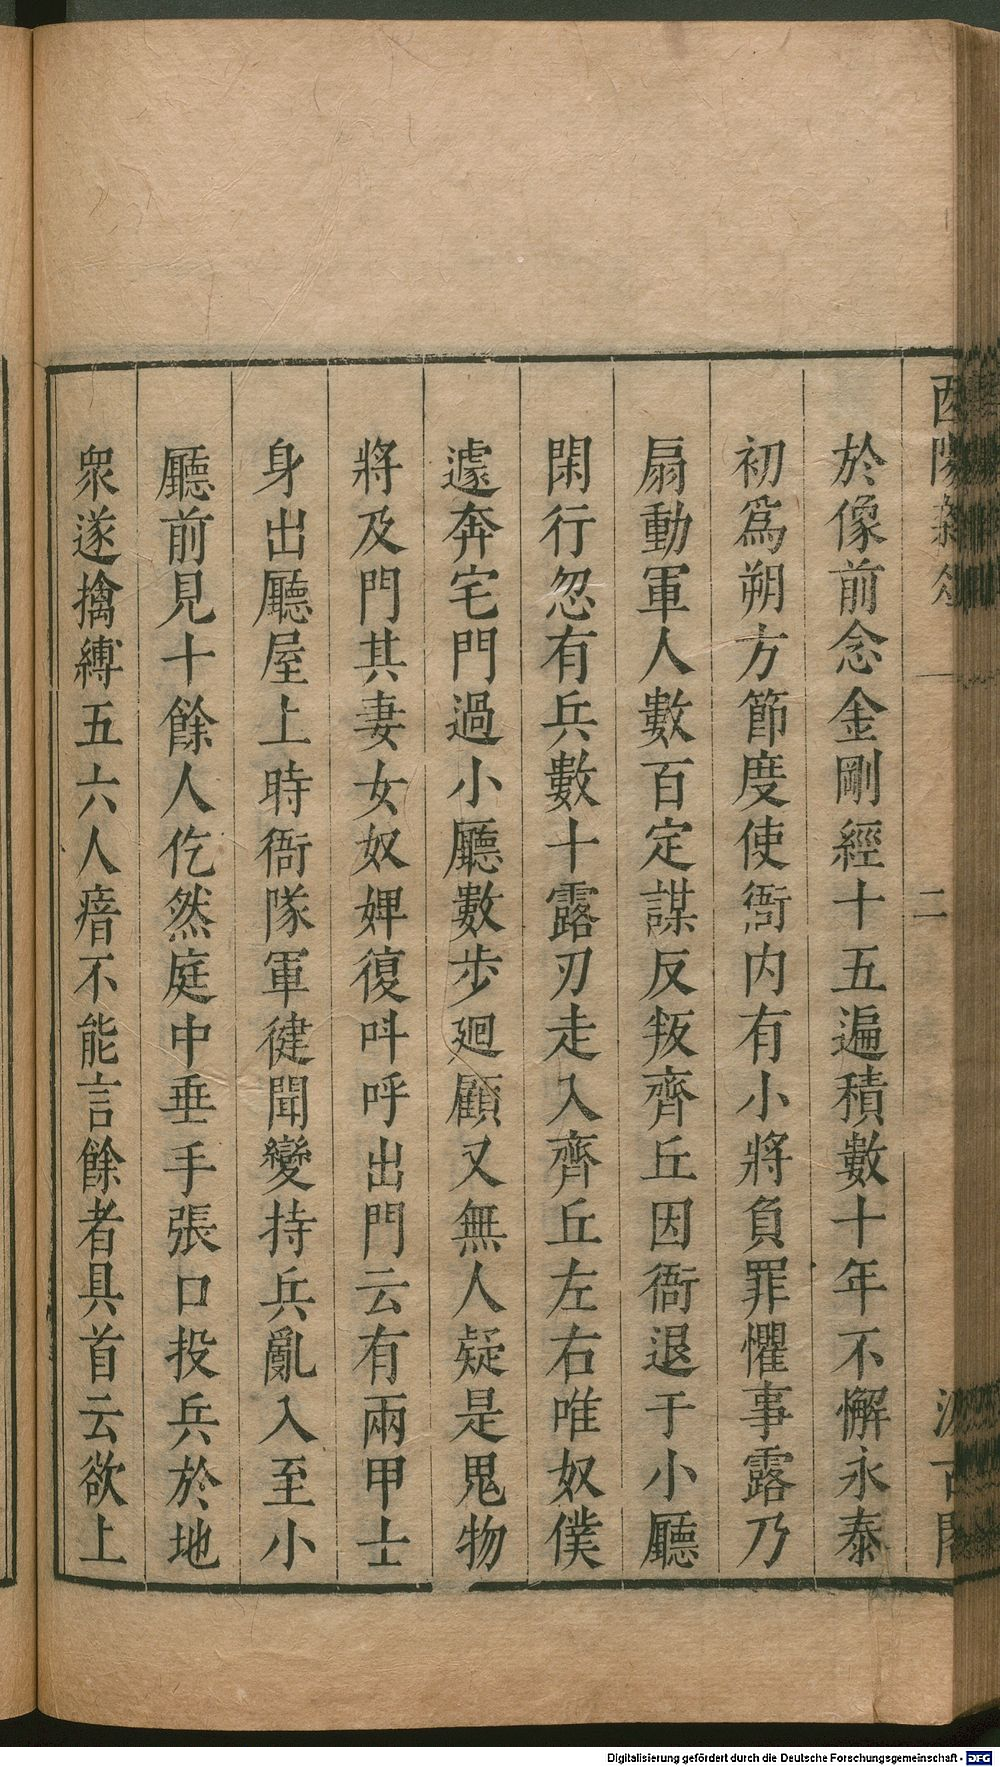 於像前念金剛經十五遍積數十年不懈永泰
初爲朔方節度使衙内有小將負罪懼事露乃
扇動軍人數百定謀反叛齊丘因衙退于小廳
閑行忽有兵數十露刃走入齊丘左右唯奴僕
遽奔宅門過小廳數步廻顧又無人疑是鬼物
將及門其妻女奴婢復呌呼出門云有兩甲士
身出廳屋上時衙隊軍徤聞變持兵亂入至小
廳前見十餘人仡然庭中垂手張口投兵於地
衆遂擒縛五六人瘖不能言餘者具首云欲上
酉陽雜俎
二
汲古閣
Digitalisierung gefördert durch die Deutsche Forschungsgemeinschaft - DFG